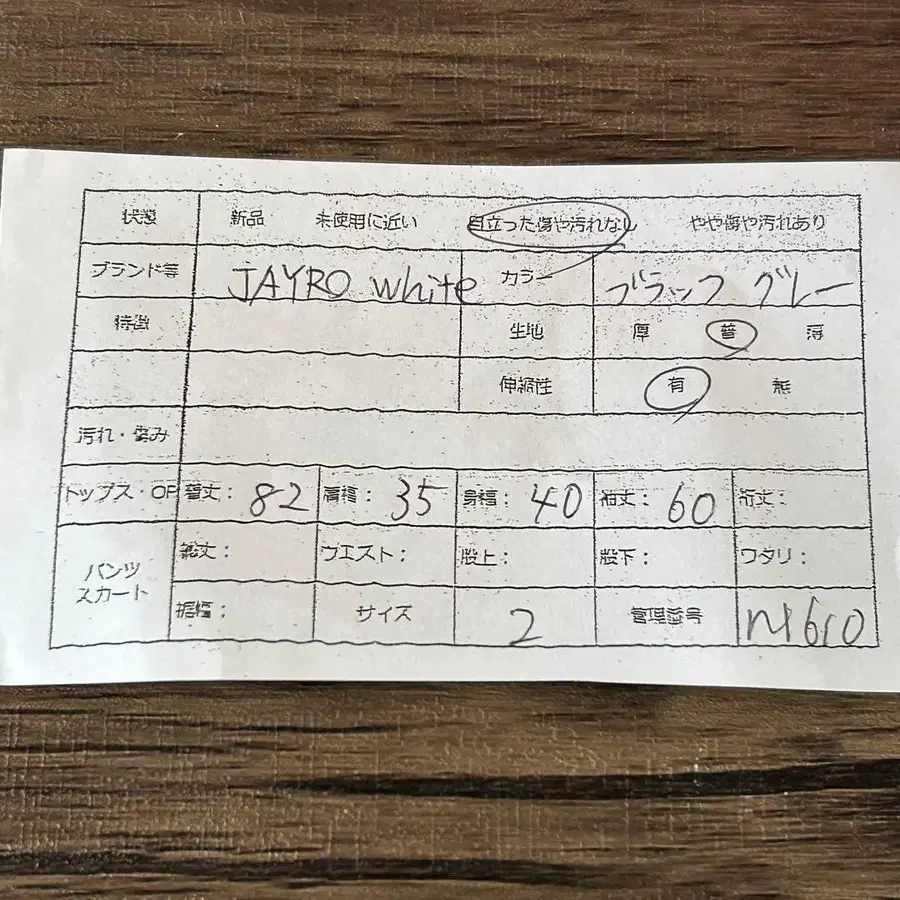 状態 新品 未使用に近い 目立った傷や汚れなし やや傷や汚れあり
ブランド等 JAYRO White カラー ブラック グレー
特徴 生地 厚 普 薄
伸縮性 有 無
汚れ・傷み
トップス・OP 着丈: 82 肩幅: 35 身幅: 40 袖丈: 60 裄丈:
パンツ スカート
総丈: ウエスト: 股上: 股下: ワタリ:
裾幅: サイズ 2 管理番号